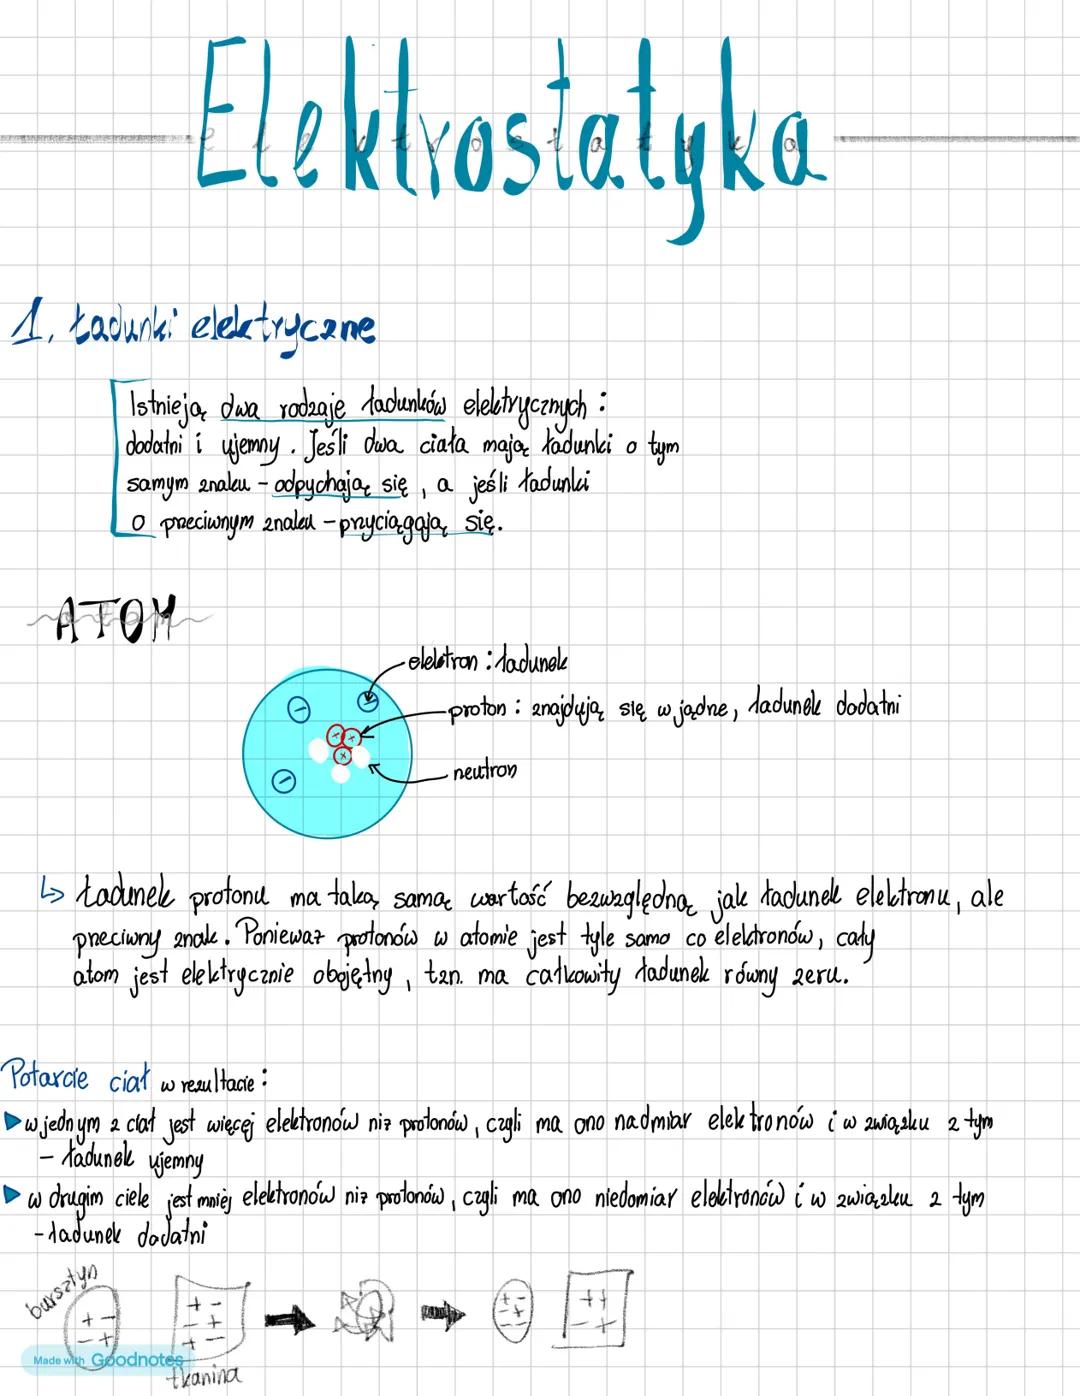 Elektrostatyka
1. Ładunki elektryczne
Istnieją dwa rodzaje ładunków elektrycznych :
dodatni i ujemny. Jeśli dwa ciała mają ładunki o tym
samym znaku - odpychają się, a jeśli ładunki
o przeciwnym znaku - przyciągają się.
ATOM
elektron : ładunek
proton : znajdują się w jądrze, ładunek dodatni
neutron
↳ Ładunek protonu ma taką samą wartość bezwzględną jak ładunek elektronu, ale
przeciwny znak. Ponieważ protonów w atomie jest tyle samo co elektronów, cały
atom jest elektrycznie obojętny, tzn. ma całkowity ładunek równy zeru.
Potarcie ciał w rezultacie :
▶ w jednym z ciał jest więcej elektronów niż protonów, czyli ma ono nadmiar elektronów i w związku z tym
- ładunek ujemny
▶ w drugim ciele jest mniej elektronów niż protonów, czyli ma ono niedomiar elektronów i w związku z tym
- ładunek dodatni
bursztyn
tkanina
Made with Goodnotes